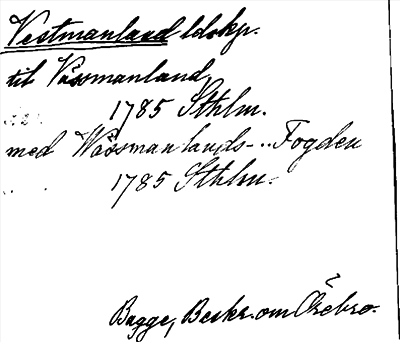 Vestmanland ldskp.
til Vässmanland
1785 Sthlm.
med Wässmanlands-..Fogden
1785 Sthlm.
Bagge, Beskr. om Örebro.